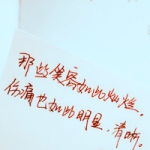 那些笑容如此灿烂。
伤痛也如此明显、清晰。